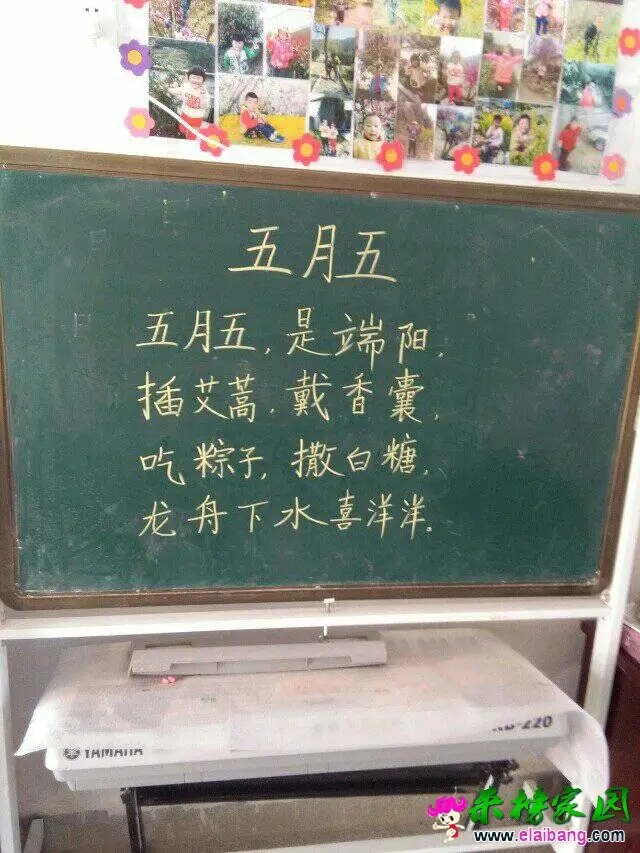 五月五
五月五,是端阳,
插艾蒿,戴香囊,
吃粽子,撒白糖,
龙舟下水喜洋洋。
YAMAHA
KB-220
来榜家园
www.elaibang.com